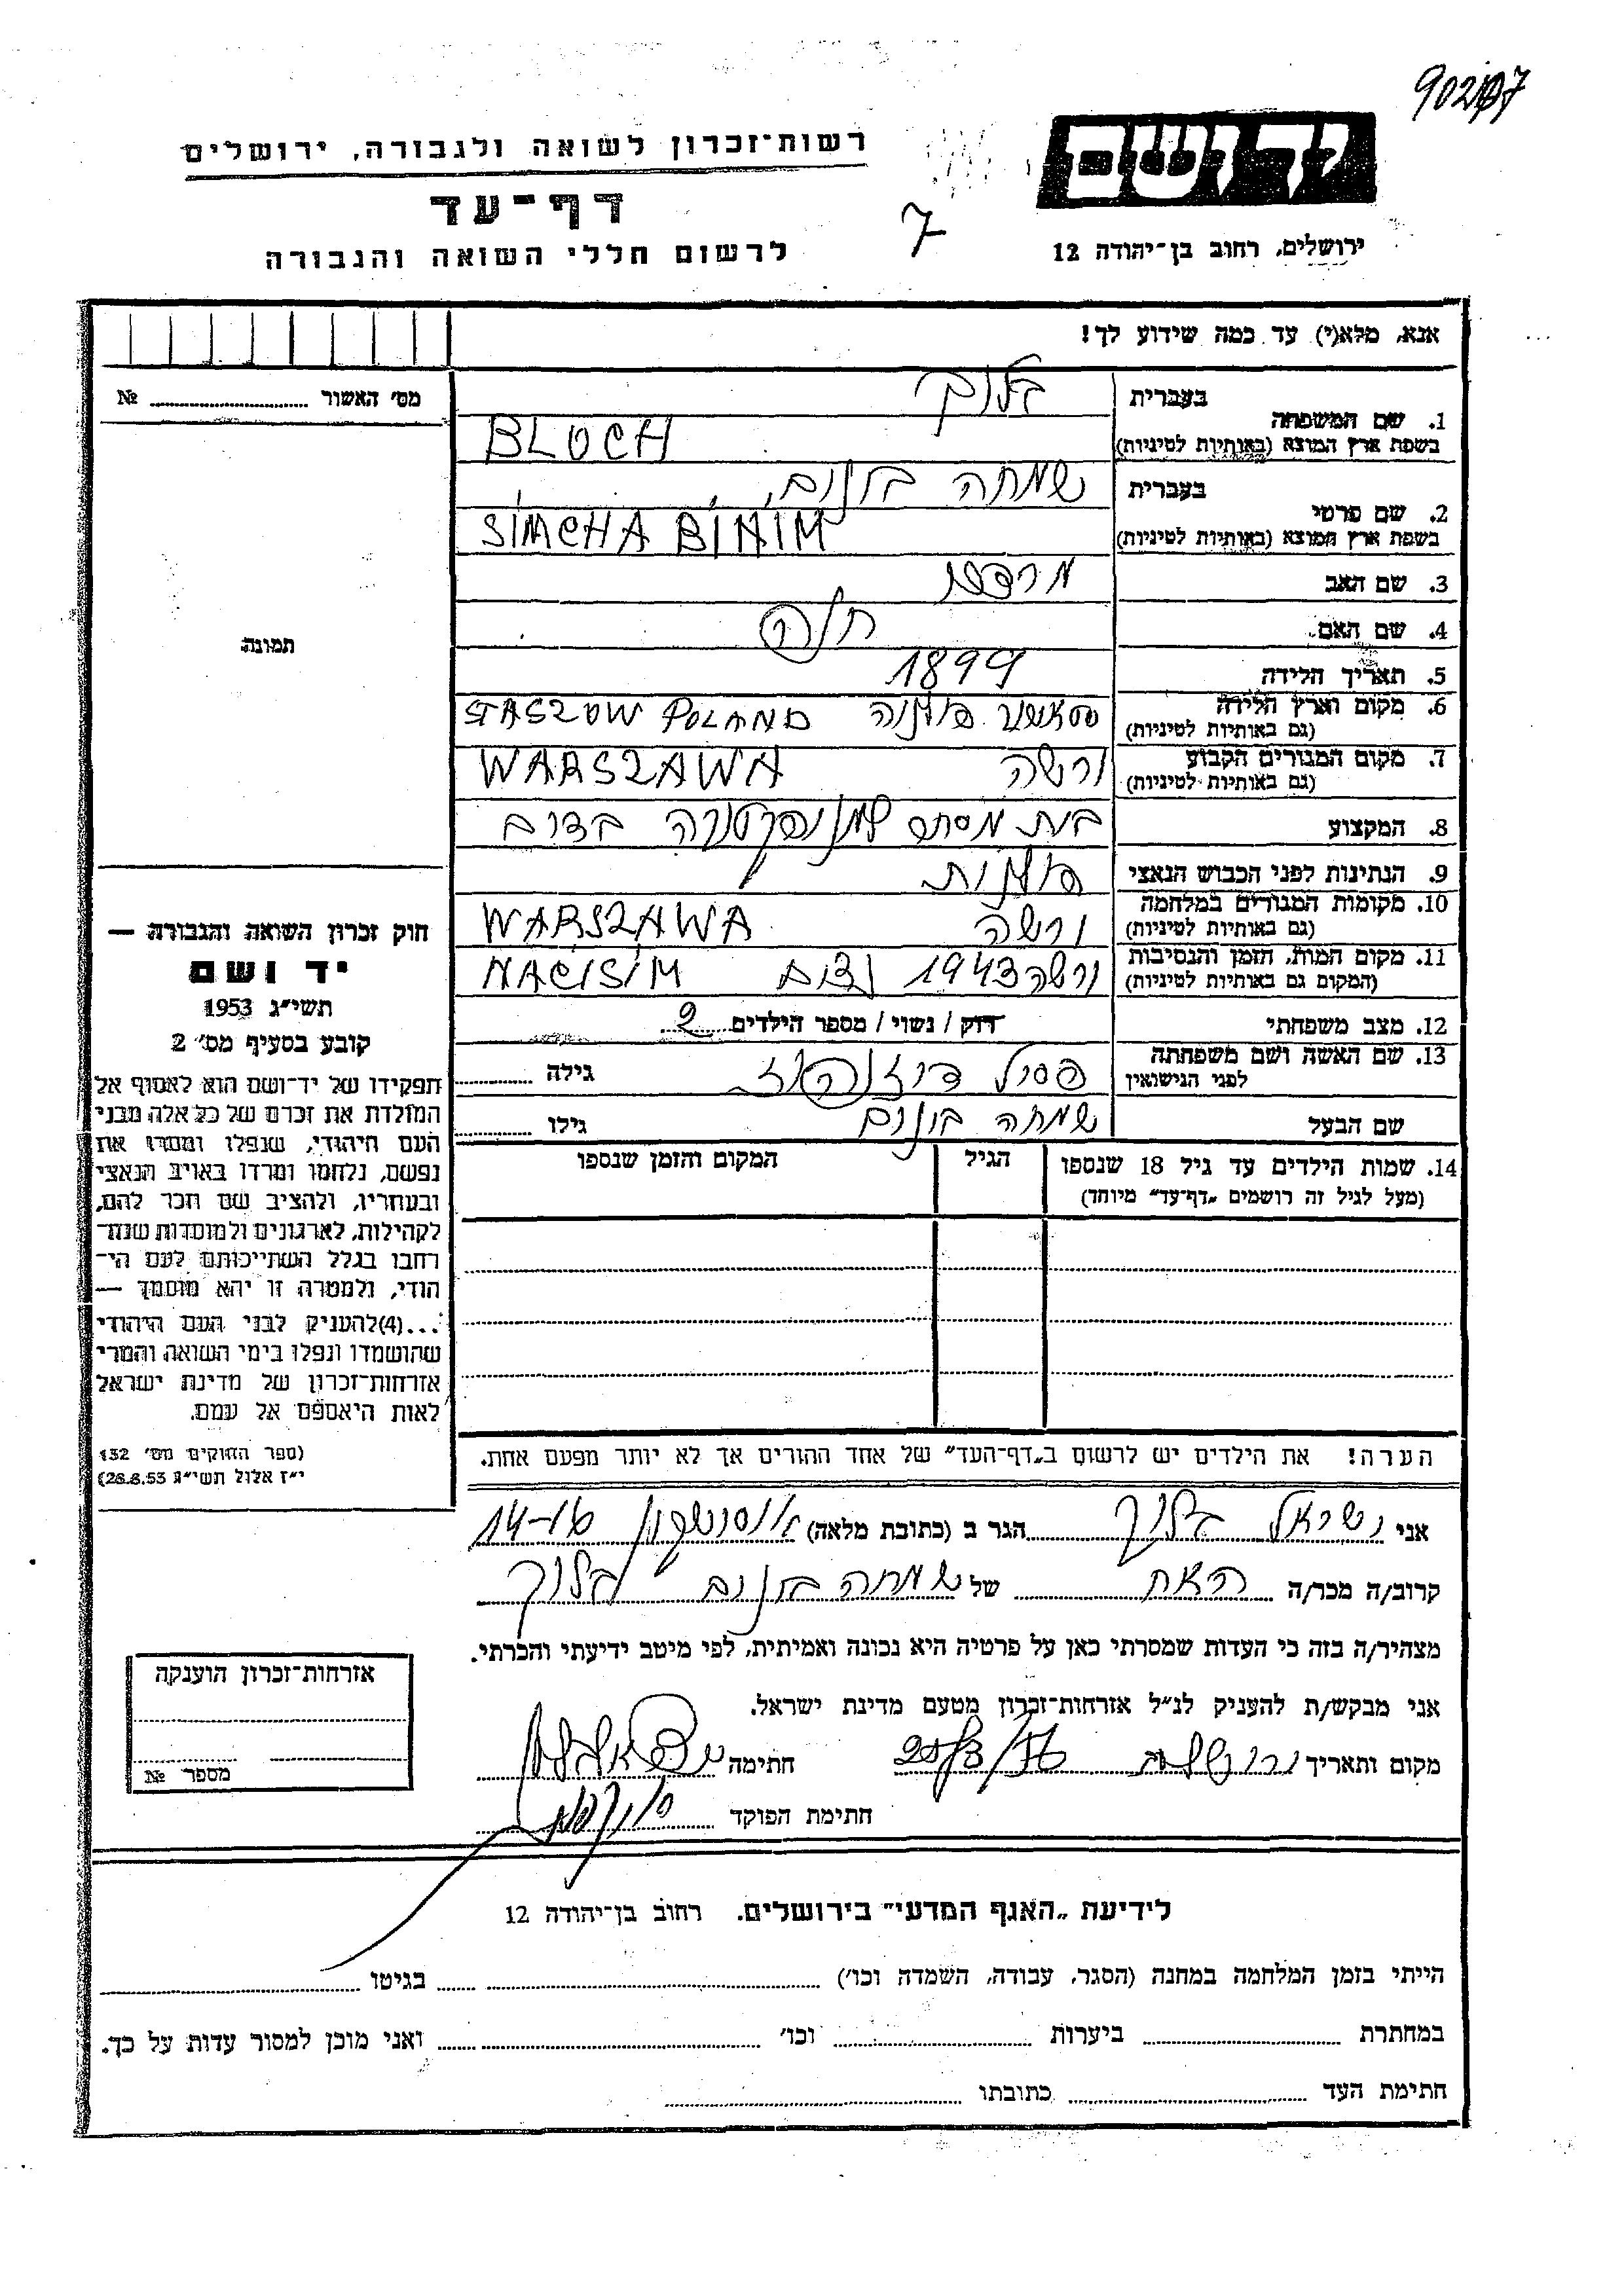 902107
יד ושם
ירושלים, רחוב בן־יהודה 12
7
רשות־זכרון לשואה ולגבורה, ירושלים
דף־עד
לרשום חללי השואה והגבורה
אנא, מלא(י) עד כמה שידוע לך!
מס׳ האשור № 
תמונה
1. שם המשפחה בעברית בלוך
בשפת ארץ המוצא (באותיות לטיניות) BLOCH
2. שם פרטי בעברית שמחה בונים
בשפת ארץ המוצא (באותיות לטיניות) SIMCHA BINIM
3. שם האב מרדכי
4. שם האם חנה
5. תאריך הלידה 1899
6. מקום וארץ הלידה פולניה STASZOW POLAND
(גם באותיות לטיניות)
7. מקום המגורים הקבוע ורשה WARSZAWA
(גם באותיות לטיניות)
8. המקצוע בית מסחר
9. הנתינות לפני הכבוש הנאצי פולנית
10. מקומות המגורים במלחמה ורשה WARSZAWA
(גם באותיות לטיניות)
11. מקום המות, הזמן והנסיבות ורשה 1943 NACISIM
(המקום גם באותיות לטיניות)
12. מצב משפחתי רוק / נשוי / מספר הילדים 2
13. שם האשה ושם משפחתה
לפני הנישואין גילה
שם הבעל שמחה בונים גילו
14. שמות הילדים עד גיל 18 שנספו הגיל המקום והזמן שנספו
(מעל לגיל זה רושמים „דף־עד״ מיוחד)
הערה! את הילדים יש לרשום ב„דף־העד״ של אחד ההורים אך לא יותר מפעם אחת.
חוק זכרון השואה והגבורה —
יד ושם
תשי״ג 1953
קובע בסעיף מס׳ 2
תפקידו של יד־ושם הוא לאסוף אל
המולדת את זכרם של כל אלה מבני
העם היהודי, שנפלו ומסרו את
נפשם, נלחמו ומרדו באויב הנאצי
ובעוזריו, ולהציב שם וזכר להם,
לקהילות, לארגונים ולמוסדות שנח־
רבו בגלל השתייכותם לעם הי־
הודי, ולמטרה זו יהא מוסמך —
...(4)להעניק לבני העם היהודי
שהושמדו ונפלו בימי השואה והמרי
אזרחות־זכרון של מדינת ישראל
לאות היאספם אל עמם.
(ספר החוקים מס׳ 132
י״ז אלול תשי״ג 28.8.53)
אני ישראל בלוך הגר ב (כתובת מלאה) 14-16
קרוב/ה מכר/ה האח של שמחה בונים בלוך
מצהיר/ה בזה כי העדות שמסרתי כאן על פרטיה היא נכונה ואמיתית, לפי מיטב ידיעתי והכרתי.
אני מבקש/ת להעניק לנ״ל אזרחות־זכרון מטעם מדינת ישראל.
מקום ותאריך ירושלים חתימה
חתימת הפוקד
אזרחות־זכרון הוענקה
מספר №
לידיעת „האגף המדעי״ בירושלים. רחוב בן־יהודה 12
הייתי בזמן המלחמה במחנה (הסגר, עבודה, השמדה וכו׳) בגיטו
במחתרת ביערות וכו׳ ואני מוכן למסור עדות על כך.
חתימת העד כתובתו